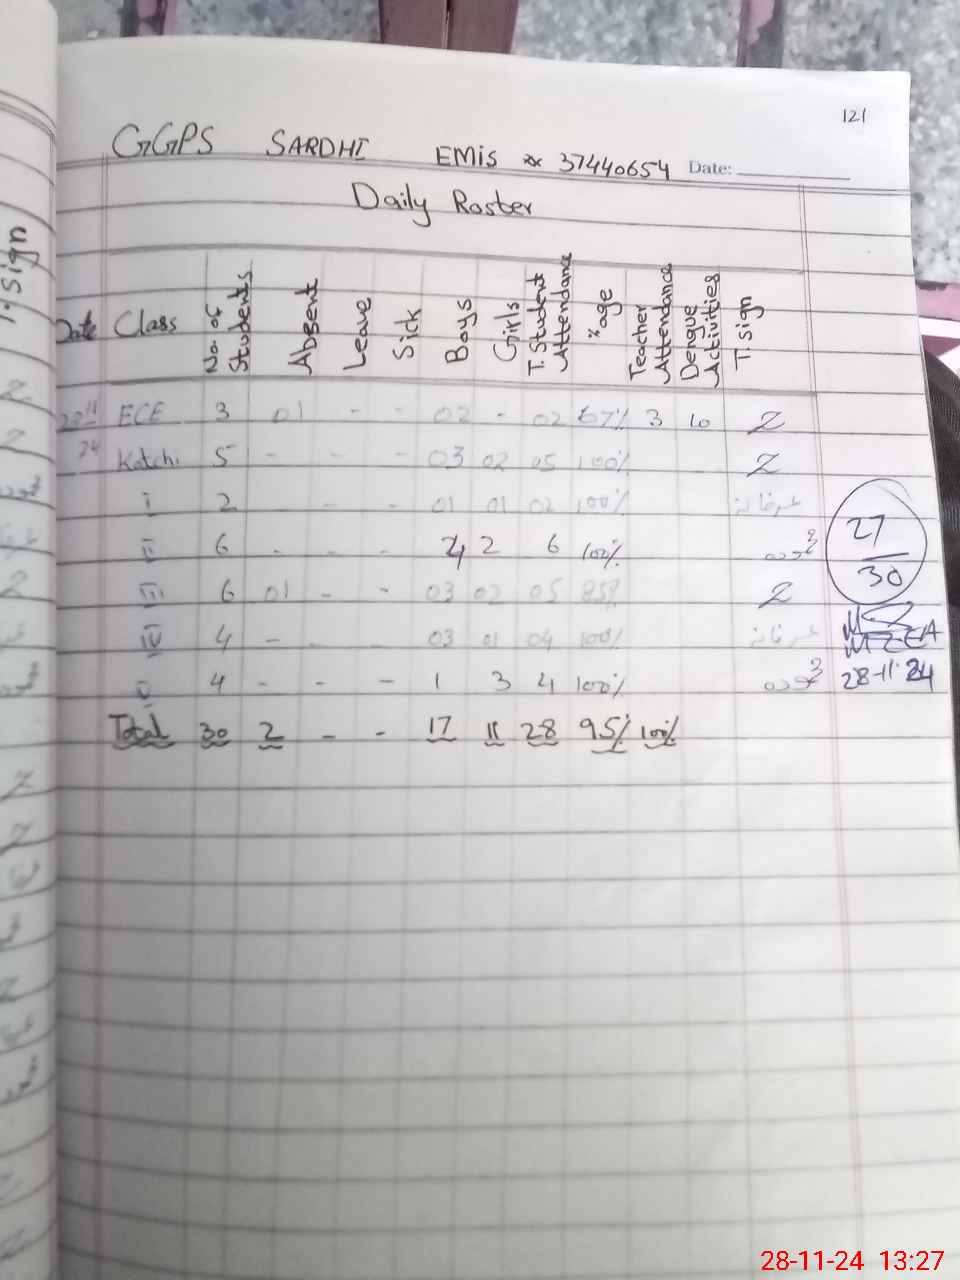 121
GGPS SARDHI EMIS 37440654 Date:
Daily Roster
T. Sign
Date Class No. of Students Absent Leave Sick Boys Girls T. Student Attendance %age Teacher Attendance Dengue Activities T. Sign
ECE 3 01 - - 02 - 02 67% 3 10
24 Katchi 5 - - - 03 02 05 100%
I 2 01 01 02 100% عرفانہ
II 6 - - - 4 2 6 100%
27
30
III 6 01 - - 03 02 05 85%
IV 4 - - - 03 01 04 100% عرفانہ
V 4 - - - 1 3 4 100%
28-11-24
Total 30 2 - - 17 11 28 95% 100%
28-11-24 13:27